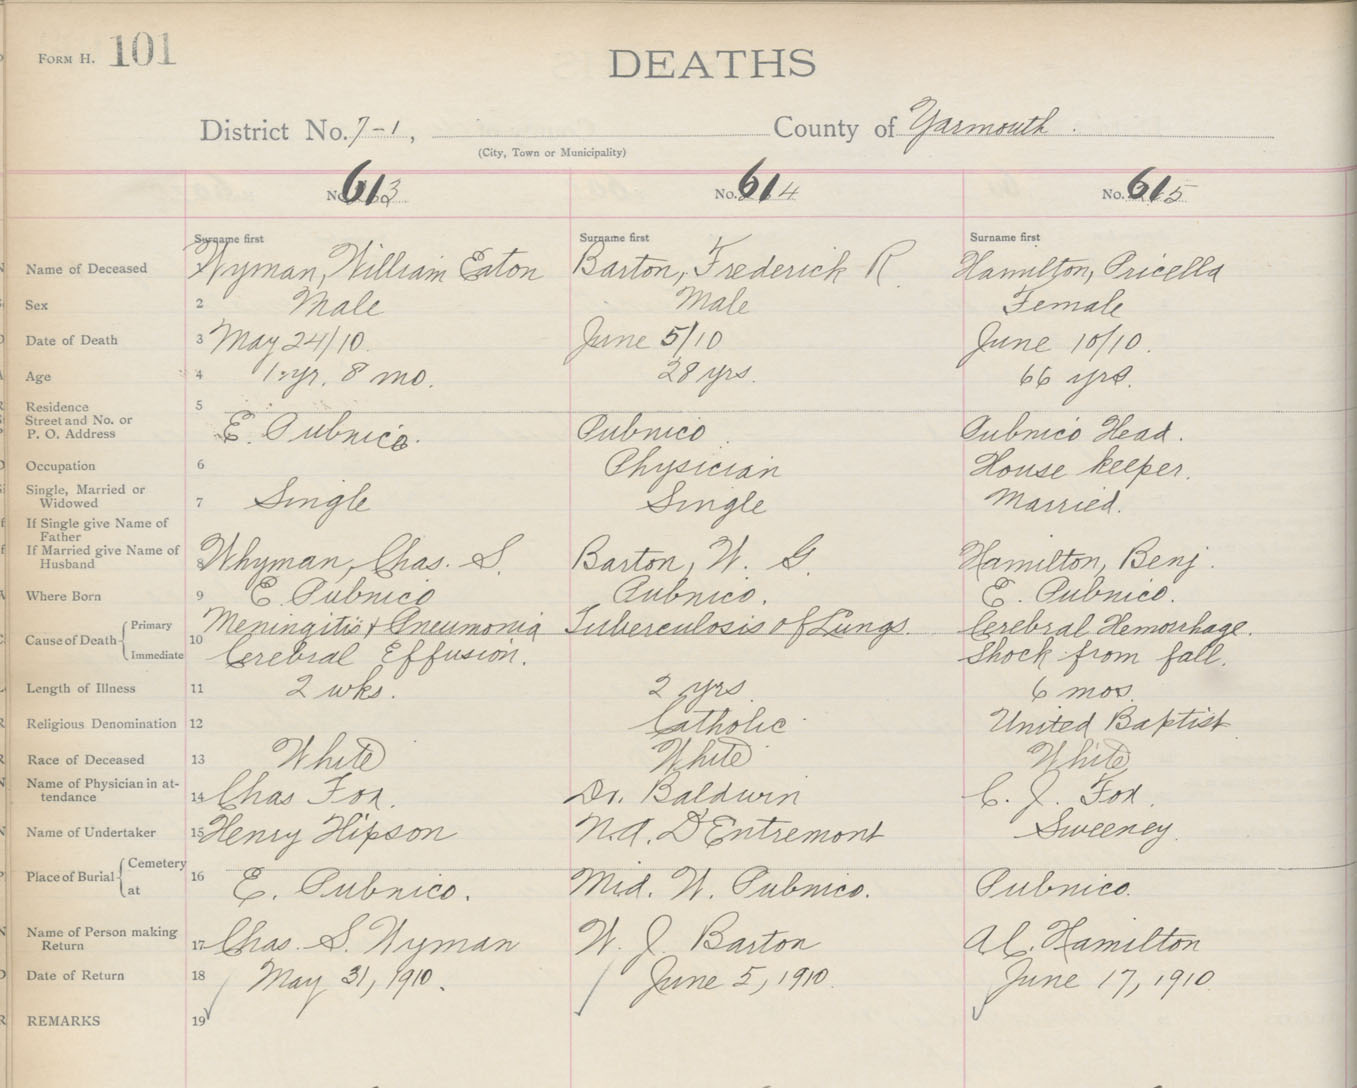 FORM H. 101
DEATHS
District No. 7-1, County of Yarmouth.
(City, Town or Municipality)
No. 613 No. 614 No. 615
Surname first Surname first Surname first
Name of Deceased 1 Wyman, William Eaton Barton, Frederick R. Hamilton, Pricella
Sex 2 Male Male Female
Date of Death 3 May 24/10. June 5/10 June 10/10.
Age 4 1 yr. 8 mo. 28 yrs. 66 yrs.
Residence 5
Street and No. or
P. O. Address E. Pubnico. Pubnico. Pubnico Head.
Occupation 6 Physician House keeper.
Single, Married or
Widowed 7 Single Single Married.
If Single give Name of
Father
If Married give Name of
Husband 8 Whyman, Chas. S. Barton, W. G. Hamilton, Benj.
Where Born 9 E. Pubnico Pubnico. E. Pubnico.
Cause of Death Primary 10 Meningitis & Pneumonia Tuberculosis of Lungs. Cerebral Hemorrhage.
Immediate Cerebral Effusion. Shock from fall.
Length of Illness 11 2 wks. 2 yrs. 6 mos.
Religious Denomination 12 Catholic United Baptist
Race of Deceased 13 White White White
Name of Physician in at-
tendance 14 Chas Fox. Dr. Baldwin C. J. Fox.
Name of Undertaker 15 Henry Hipson N.A. D'Entremont Sweeney.
Place of Burial Cemetery 16
at E. Pubnico. Mid. W. Pubnico. Pubnico.
Name of Person making
Return 17 Chas. S. Wyman W. J. Barton A C. Hamilton
Date of Return 18 May 31, 1910. June 5, 1910. June 17, 1910.
REMARKS 19